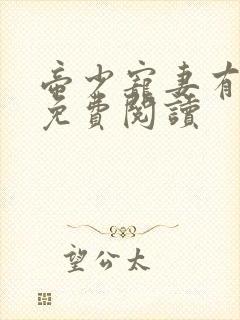 蚕少寵妻有
免費閱讀
望公太